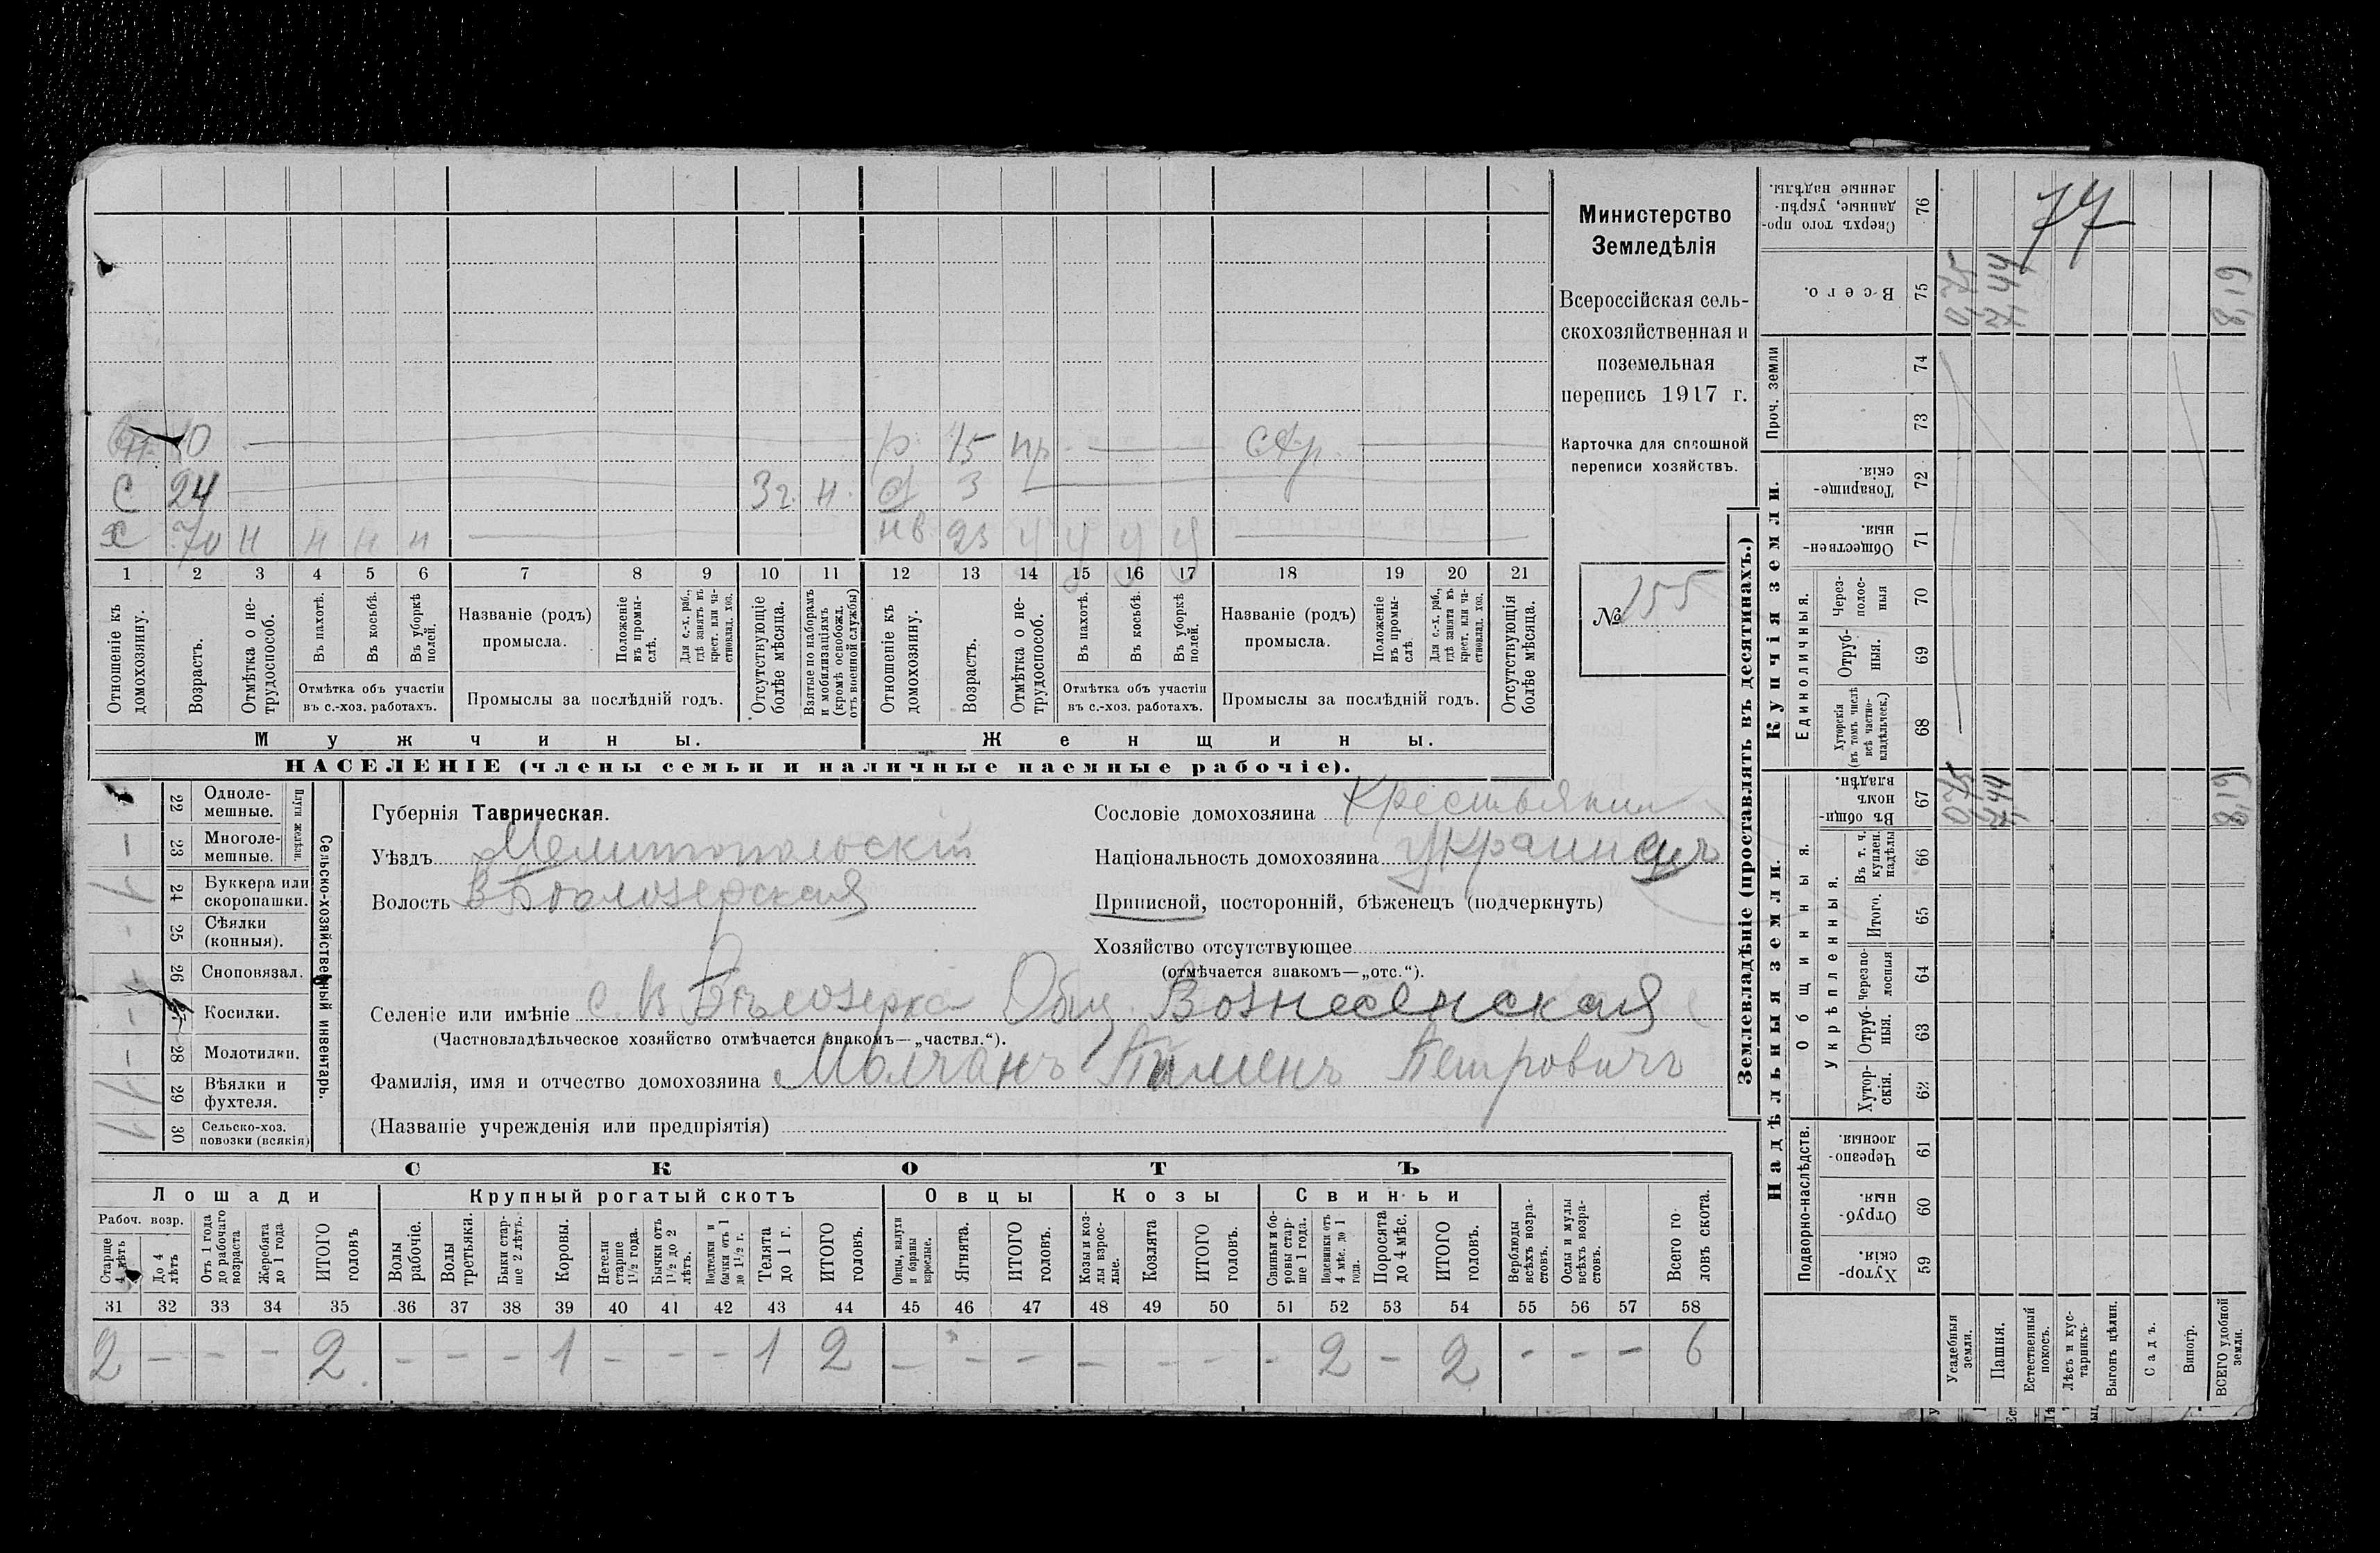 77
Министерство
Земледѣлія
Всероссійская сель-
скохозяйственная и
поземельная
перепись 1917 г.
Карточка для сплошной
переписи хозяйствъ.
№ 155
10 — р 15 пр. —
С 24 — 3 г. н. 3 —
Х 70 н н н н — нв 23 —
1 2 3 4 5 6 7 8 9 10 11 12 13 14 15 16 17 18 19 20 21
Отношеніе къ домохозяину.
Возрастъ.
Отмѣтка о не-трудоспособ.
Въ пахотѣ.
Въ косьбѣ.
Въ уборкѣ полей.
Отмѣтка объ участіи
въ с.-хоз. работахъ.
Названіе (родъ)
промысла.
Положеніе въ промы-слѣ.
Для с.-х. раб., гдѣ занятъ въ крест. или ча-стновлад. хоз.
Промыслы за послѣдній годъ.
Отсутствующіе болѣе мѣсяца.
Взятые по наборамъ и мобилизаціямъ (кромѣ освобожд. отъ военной службы)
Отношеніе къ домохозяину.
Возрастъ.
Отмѣтка о не-трудоспособ.
Въ пахотѣ.
Въ косьбѣ.
Въ уборкѣ полей.
Отмѣтка объ участіи
въ с.-хоз. работахъ.
Названіе (родъ)
промысла.
Положеніе въ промы-слѣ
Для с.-х. раб., гдѣ занята въ крест. или ча-стновлад. хоз.
Промыслы за послѣдній годъ.
Отсутствующія болѣе мѣсяца.
Мужчины. Женщины.
НАСЕЛЕНІЕ (члены семьи и наличные наемные рабочіе).
Сельско-хозяйственный инвентарь.
Плуги желѣзн.
22 Одноле-мешные.
— 23 Многоле-мешные.
1 24 Буккера или скоропашки.
- 25 Сѣялки (конныя).
26 Сноповязал.
27 Косилки.
- 28 Молотилки.
1 29 Вѣялки и фухтеля.
1 30 Сельско-хоз. повозки (всякія)
Губернія Таврическая.
Уѣздъ Мелитопольскій
Волость В Бѣлозерская
Сословіе домохозяина Крестьянин
Національность домохозяина украинецъ
Приписной, посторонній, бѣженецъ (подчеркнуть)
Хозяйство отсутствующее
(отмѣчается знакомъ—„отс.“).
Селеніе или имѣніе с. В Бѣлозерка Общ. Вознесенская
(Частновладѣльческое хозяйство отмѣчается знакомъ—„частвл.“).
Фамилія, имя и отчество домохозяина Молчанъ Пименъ Петровичъ
(Названіе учрежденія или предпріятія)
СКОТЪ
Лошади Крупный рогатый скотъ Овцы Козы Свиньи
Рабоч. возр.
Старше 4 лѣтъ
До 4 лѣтъ
Отъ 1 года до рабочаго возраста
Жеребята до 1 года
ИТОГО головъ
Волы рабочіе.
Волы третьяки.
Быки стар-ше 2 лѣтъ.
Коровы.
Нетели старше 1 1/2 года.
Бычки отъ 1 1/2 до 2 лѣтъ.
Подтелки и бычки отъ 1 до 1 1/2 г.
Телята до 1 г.
ИТОГО головъ.
Овцы, валухи и бараны взрослые.
Ягнята.
ИТОГО головъ.
Козы и коз-лы взрос-лые.
Козлята
ИТОГО головъ.
Свиньи и бо-ровы стар-ше 1 года.
Подсвинки отъ 4 мѣс. до 1 года.
Поросята до 4 мѣс.
ИТОГО головъ.
Верблюды всѣхъ возра-стовъ.
Ослы и мулы всѣхъ возра-стовъ.
Всего го-ловъ скота.
31 32 33 34 35 36 37 38 39 40 41 42 43 44 45 46 47 48 49 50 51 52 53 54 55 56 57 58
2 — — — 2 — — — 1 — — — 1 2 — — — — — — — 2 — 2 — — — 6
Землевладѣніе (проставлять въ десятинахъ.)
Купчія земли.
Надѣльныя земли.
Сверхъ того про-данные, укрѣп-ленные надѣлы. 76
Всего. 75 0,75 7,44 8,19
Проч. земли 74
73
Товарище-скія. 72
Обществен-ныя. 71
Единоличныя.
Через-полос-ныя 70
Отруб-ныя. 69
Хуторскія (въ томъ числѣ всѣ частно-владѣльческ.) 68
Общинныя.
Въ общи-номъ владѣн. 67 0,75 7,44 8,19
Укрѣпленныя.
Въ т. ч. куплен. надѣлы 66
Итого. 65
Черезпо-лосныя 64
Отруб-ныя. 63
Хутор-скія. 62
Подворно-наслѣдств.
Черезпо-лосныя. 61
Отруб-ныя. 60
Хутор-скія. 59
Усадебныя земли.
Пашня.
Естественный покосъ.
Лѣсъ и кус-тарникъ.
Выгонъ цѣлин.
Садъ.
Виногр.
ВСЕГО удобной земли.